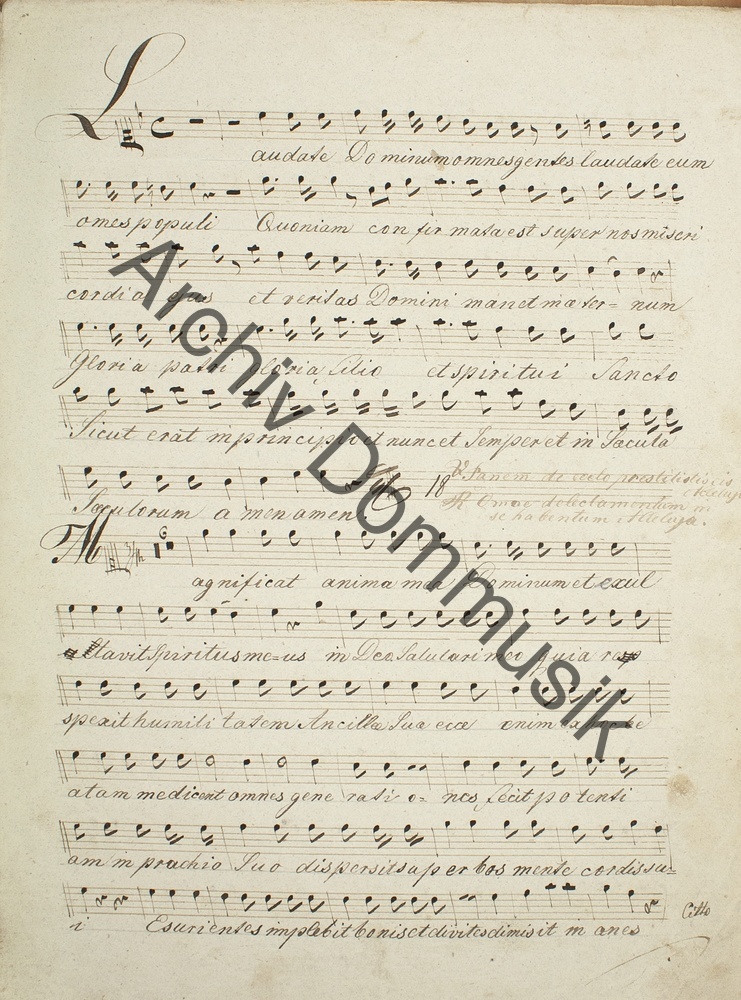 Laudate Dominum omnes gentes laudate eum
omes populi Quoniam confirmata est super nos miseri
cordia ejus et veritas Domini manet in æter= num
Gloria patri gloria filio et spiritui Sancto
Sicut erat in principio et nunc et Semper et in Sæcula
Sæculorum amen amen
18 V. Panem de cœlo præstitisti eis alleluja
R Omne delectamentum in
se habentem Alleluja.
6
Magnificat anima mea Dominum et exul
tavit Spiritus me=us in Deo Salutari meo quia re
spexit humilitatem Ancillæ Suæ ecce enim ex hoc be
atam me dicent omnes gene rati o= nes fecit potenti
am in prachio Suo dispersit superbos mente cordis su=
i Esurientes implebit bonis et divites dimisit in anes
Citto
Archiv Dommusik